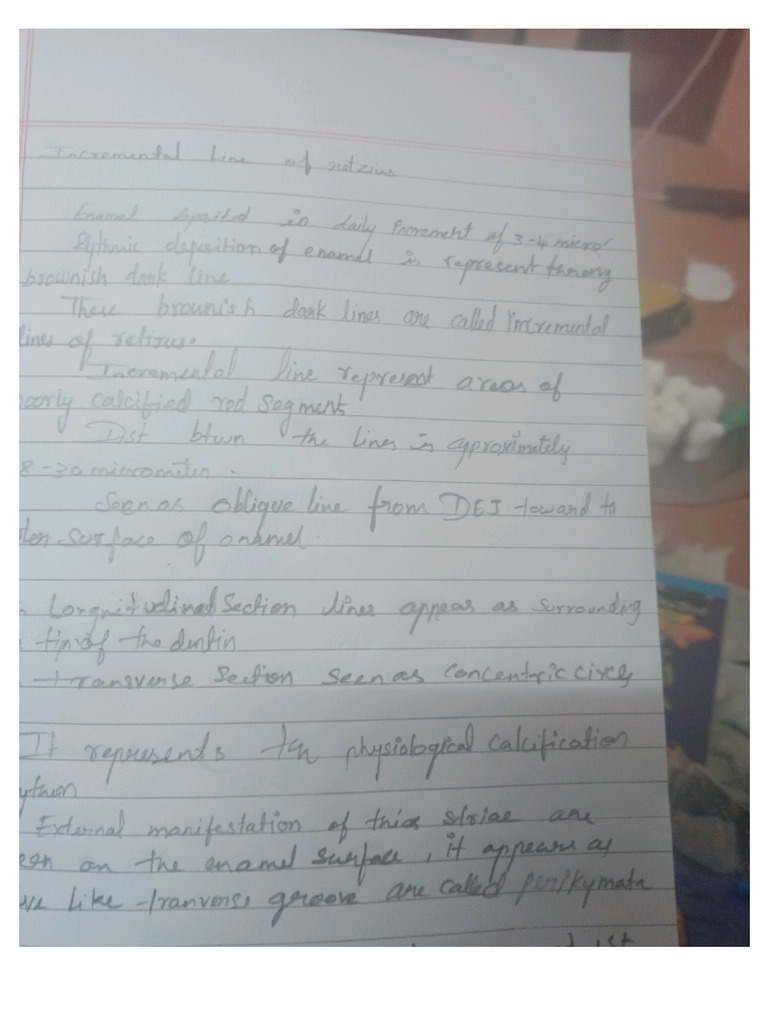 Incremental line of retzius
Enamel in daily increment of 3-4 micro
Rythmic deposition of enamel is represent
brownish dark line
These brownish dark lines are called incremental
lines of retizus.
Incremental line represent areas of
oorly calcified rod segment
Dist btwn the lines is aproximately
8-30 micrometer.
Seen as oblique line from DEJ toward to
surface of enamel.
Longnitudinal Section lines appear as surrounding
tip of the dentin
transverse section seen as concentric circs
It represents the physiological calcification
ythem
External manifestation of this striae are
een on the enamel surface, it appears as
ve like tranverse groove are called perikymata